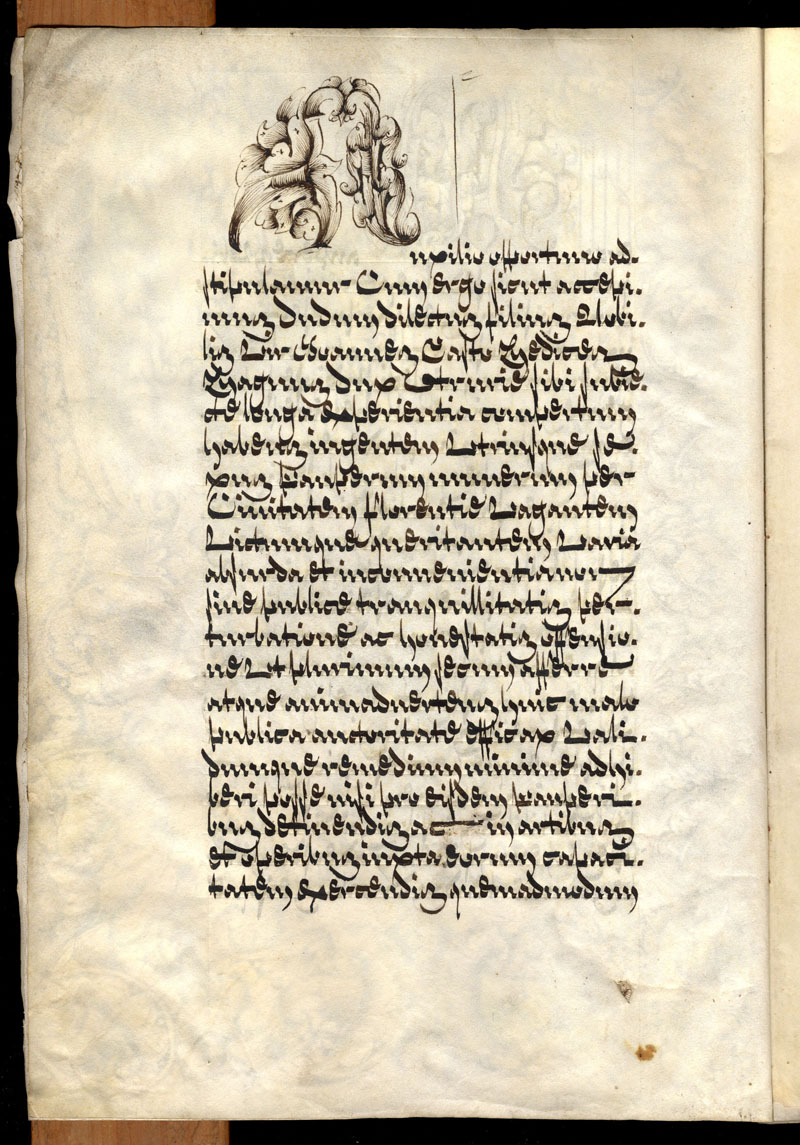 Auxilio opportuno ad-
stipulamur Cum ergo sicut accepi-
mus dudum dilectus filius Nobi-
lis Vir Joannes Casto Medices
Magnus Dux Etrurie sibi subie-
cte longa experientia compertum
habens ingentem Utriusque se-
xus Pauperum numerum per
Civitatem Florentie Vagantem
Victumque queritantem Varia
absurda et inconvenientia non
sine publice tranquillitatis per-
turbatione ac honestatis offensio-
ne Ut plurimum secum afferre
atque animadvertens huic malo
publica auctoritate efficax Vali-
dumque remedium minime adhi-
beri posse nisi pro eisdem Pauperi-
bus detinendis ac in artibus
et operibus iuxta eorum capaci-
tatem exercendis quemadmodum